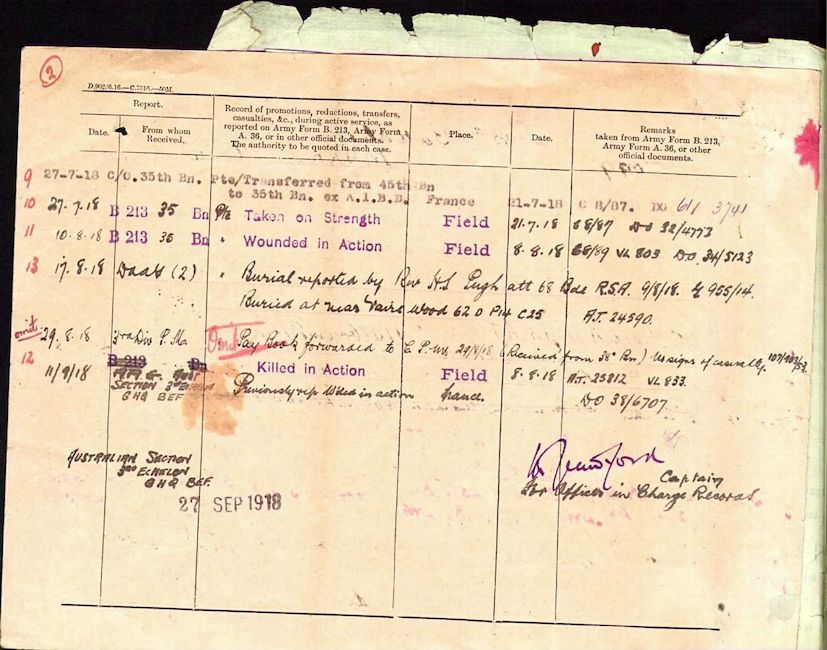 2
D.902/6.16.—C.7516.—50M.
Report.
Date.
From whom
Received.
Record of promotions, reductions, transfers,
casualties, &c., during active service, as
reported on Army Form B. 213, Army Form
A. 36, or in other official documents.
The authority to be quoted in each case.
Place.
Date.
Remarks
taken from Army Form B. 213,
Army Form A. 36, or other
official documents.
9 27-7-18 C/O.35th Bn. Pte/Transferred from 45th Bn
to 35th Bn. ex A.I.B.D. France 21-7-18 C 8/87. DO 61/3741
10 27.7.18 B 213 35 Bn Pte Taken on Strength Field 21.7.18 68/87 DO 32/4773
11 10.8.18 B 213 35 Bn " Wounded in Action Field 8.8.18 68/89 VL 803 DO 34/5123
13 17.8.18 (2) " Burial reported by Rev H.S. Pugh att 68 Bde R.S.A. 9/8/18. 955/14.
Buried at near Vaire Wood 62 D P14 C25 A.T. 24590.
omit 29.8.18 3rd Div P.M. Omit Pay Book forwarded to 29/8/18 (Received from 38 Bn)
12 B 213 Bn Killed in Action Field 8.8.18 A.T. 25812 VL 833.
11/9/18 A.A.G. Aus Previously rep W'ded in action France. DO 38/6707
SECTION 3rd ECHELON
GHQ BEF
AUSTRALIAN SECTION
3RD ECHELON
GHQ BEF.
27 SEP 1918
Captain
For Officer in Charge Records